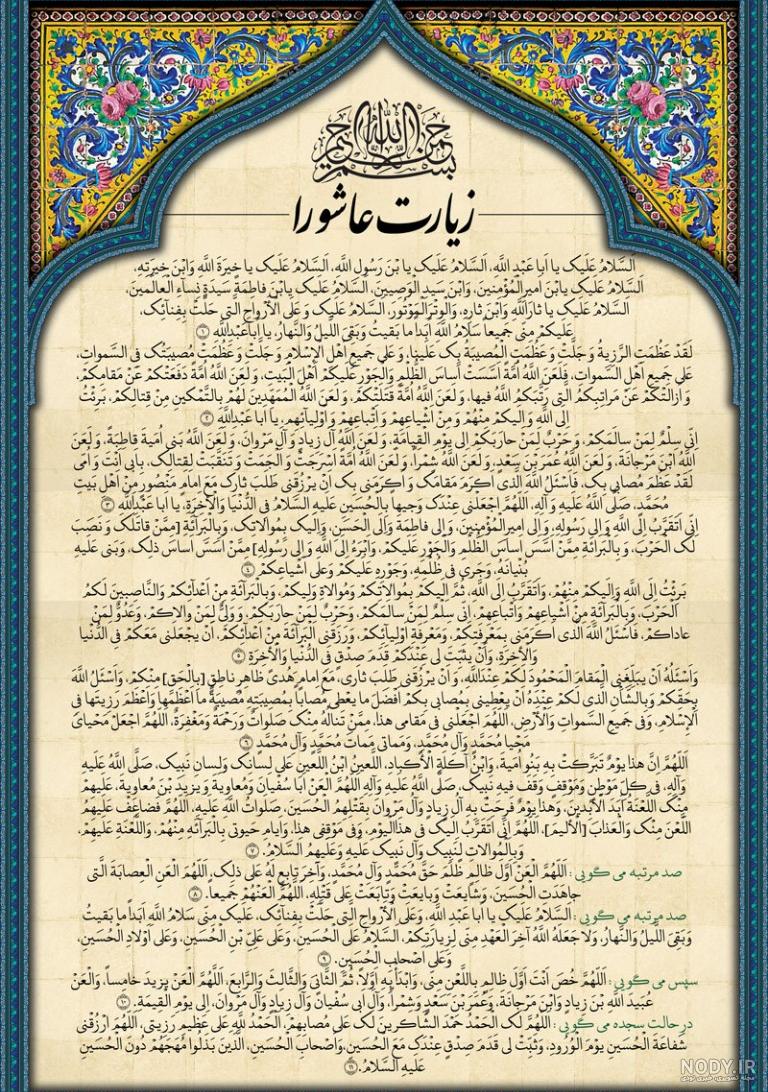 بسم الله الرحمن الرحیم
زیارت عاشورا
اَلسَّلامُ عَلَیْکَ یا اَبا عَبْدِ اللّٰهِ، اَلسَّلامُ عَلَیْکَ یا بْنَ رَسُولِ اللّٰهِ، اَلسَّلامُ عَلَیْکَ یا خِیَرَةَ اللّٰهِ وَابْنَ خِیَرَتِهِ،
اَلسَّلامُ عَلَیْکَ یابْنَ اَمیرِالْمُؤْمِنینَ، وَابْنَ سَیِّدِ الْوَصِیّینَ، اَلسَّلامُ عَلَیْکَ یابْنَ فاطِمَةَ سَیِّدَةِ نِساءِ الْعالَمینَ،
اَلسَّلامُ عَلَیْکَ یا ثارَاللّٰهِ وَابْنَ ثارِهِ، وَالْوِتْرَالْمَوْتُورَ، اَلسَّلامُ عَلَیْکَ وَ عَلَی الْأَرْواحِ الَّتی حَلَّتْ بِفِنائِکَ،
عَلَیْکُمْ مِنّی جَمیعاً سَلامُ اللّٰهِ اَبَداً ما بَقیتُ وَبَقِیَ اللَّیْلُ وَالنَّهارُ، یا اَباعَبْدِاللّٰهِ ۱
لَقَدْ عَظُمَتِ الرَّزِیَّةُ وَ جَلَّتْ وَ عَظُمَتِ الْمُصیبَةُ بِکَ عَلَیْنا، وَ عَلی جَمیعِ اَهْلِ الْاِسْلامِ وَ جَلَّتْ وَ عَظُمَتْ مُصیبَتُکَ فِی السَّمواتِ،
عَلی جَمیعِ اَهْلِ السَّمواتِ، فَلَعَنَ اللّٰهُ اُمَّةً اَسَّسَتْ اَساسَ الظُّلْمِ وَالْجَوْرِ عَلَیْکُمْ اَهْلَ الْبَیْتِ، وَ لَعَنَ اللّٰهُ اُمَّةً دَفَعَتْکُمْ عَنْ مَقامِکُمْ،
وَ اَزالَتْکُمْ عَنْ مَراتِبِکُمُ الَّتی رَتَّبَکُمُ اللّٰهُ فیها، وَ لَعَنَ اللّٰهُ اُمَّةً قَتَلَتْکُمْ، وَ لَعَنَ اللّٰهُ الْمُمَهِّدینَ لَهُمْ بِالتَّمْکینِ مِنْ قِتالِکُمْ، بَرِئْتُ
اِلَی اللّٰهِ وَ اِلَیْکُمْ مِنْهُمْ وَ مِنْ اَشْیاعِهِمْ وَ اَتْباعِهِمْ وَ اَوْلِیائِهِمْ، یا اَبا عَبْدِاللّٰهِ ۲
اِنّی سِلْمٌ لِمَنْ سالَمَکُمْ، وَ حَرْبٌ لِمَنْ حارَبَکُمْ اِلی یَوْمِ الْقِیامَةِ، وَ لَعَنَ اللّٰهُ آلَ زِیادٍ وَ آلَ مَرْوانَ، وَ لَعَنَ اللّٰهُ بَنی اُمَیَّةَ قاطِبَةً، وَ لَعَنَ
اللّٰهُ ابْنَ مَرْجانَةَ، وَ لَعَنَ اللّٰهُ عُمَرَ بْنَ سَعْدٍ، وَ لَعَنَ اللّٰهُ شِمْراً، وَ لَعَنَ اللّٰهُ اُمَّةً اَسْرَجَتْ وَ اَلْجَمَتْ وَ تَنَقَّبَتْ لِقِتالِکَ، بِاَبی اَنْتَ وَ اُمّی
لَقَدْ عَظُمَ مُصابی بِکَ، فَاَسْئَلُ اللّٰهَ الَّذی اَکْرَمَ مَقامَکَ وَ اَکْرَمَنی بِکَ اَنْ یَرْزُقَنی طَلَبَ ثارِکَ مَعَ اِمامٍ مَنْصُورٍ مِنْ اَهْلِ بَیْتِ
مُحَمَّدٍ، صَلَّی اللّٰهُ عَلَیْهِ وَ آلِهِ، اَللّٰهُمَّ اجْعَلْنی عِنْدَکَ وَجیهاً بِالْحُسَیْنِ عَلَیْهِ السَّلامُ فِی الدُّنْیا وَ الْآخِرَةِ، یا اَبا عَبْدِاللّٰهِ ۳
اِنّی اَتَقَرَّبُ اِلَی اللّٰهِ وَ اِلی رَسُولِهِ، وَ اِلی اَمیرِالْمُؤْمِنینَ، وَ اِلی فاطِمَةَ وَ اِلَی الْحَسَنِ، وَ اِلَیْکَ بِمُوالاتِکَ، وَ بِالْبَرائَةِ [مِمَّنْ قاتَلَکَ وَ نَصَبَ
لَکَ الْحَرْبَ، وَ بِالْبَرائَةِ مِمَّنْ اَسَّسَ اَساسَ الظُّلْمِ وَ الْجَوْرِ عَلَیْکُمْ، وَ اَبْرَءُ اِلَی اللّٰهِ وَ اِلی رَسُولِهِ] مِمَّنْ اَسَّسَ اَساسَ ذلِکَ، وَ بَنی عَلَیْهِ
بُنْیانَهُ، وَ جَری فی ظُلْمِهِ، وَ جَوْرِهِ عَلَیْکُمْ وَ عَلی اَشْیاعِکُمْ ۴
بَرِئْتُ اِلَی اللّٰهِ وَ اِلَیْکُمْ مِنْهُمْ، وَ اَتَقَرَّبُ اِلَی اللّٰهِ، ثُمَّ اِلَیْکُمْ بِمُوالاتِکُمْ وَ مُوالاةِ وَلِیِّکُمْ، وَ بِالْبَرائَةِ مِنْ اَعْدائِکُمْ وَ النّاصِبینَ لَکُمُ
الْحَرْبَ، وَ بِالْبَرائَةِ مِنْ اَشْیاعِهِمْ وَ اَتْباعِهِمْ، اِنّی سِلْمٌ لِمَنْ سالَمَکُمْ، وَ حَرْبٌ لِمَنْ حارَبَکُمْ، وَ وَلِیٌّ لِمَنْ والاکُمْ، وَ عَدُوٌّ لِمَنْ
عاداکُمْ، فَاَسْئَلُ اللّٰهَ الَّذی اَکْرَمَنی بِمَعْرِفَتِکُمْ، وَ مَعْرِفَةِ اَوْلِیائِکُمْ، وَ رَزَقَنِی الْبَرائَةَ مِنْ اَعْدائِکُمْ، اَنْ یَجْعَلَنی مَعَکُمْ فِی الدُّنْیا
وَ الْآخِرَةِ، وَ اَنْ یُثَبِّتَ لی عِنْدَکُمْ قَدَمَ صِدْقٍ فِی الدُّنْیا وَ الْآخِرَةِ ۵
وَ اَسْئَلُهُ اَنْ یُبَلِّغَنِی الْمَقامَ الْمَحْمُودَ لَکُمْ عِنْدَاللّٰهِ، وَ اَنْ یَرْزُقَنی طَلَبَ ثاری، مَعَ اِمامٍ هُدیً ظاهِرٍ ناطِقٍ [بِالْحَقِّ] مِنْکُمْ، وَ اَسْئَلُ اللّٰهَ
بِحَقِّکُمْ وَ بِالشَّأْنِ الَّذی لَکُمْ عِنْدَهُ اَنْ یُعْطِیَنی بِمُصابی بِکُمْ اَفْضَلَ ما یُعْطی مُصاباً بِمُصیبَتِهِ مُصیبَةً ما اَعْظَمَها وَ اَعْظَمَ رَزِیَّتَها فِی
الْاِسْلامِ، وَ فی جَمیعِ السَّمواتِ وَ الْاَرْضِ، اَللّٰهُمَّ اجْعَلْنی فی مَقامی هذا، مِمَّنْ تَنالُهُ مِنْکَ صَلَواتٌ وَ رَحْمَةٌ وَ مَغْفِرَةٌ، اَللّٰهُمَّ اجْعَلْ مَحْیایَ
مَحْیا مُحَمَّدٍ وَ آلِ مُحَمَّدٍ، وَ مَماتی مَماتَ مُحَمَّدٍ وَ آلِ مُحَمَّدٍ ۶
اَللّٰهُمَّ اِنَّ هذا یَوْمٌ تَبَرَّکَتْ بِهِ بَنُو اُمَیَّةَ، وَ ابْنُ آکِلَةِ الْاَکْبادِ، اللَّعینُ ابْنُ اللَّعینِ عَلی لِسانِکَ وَ لِسانِ نَبِیِّکَ، صَلَّی اللّٰهُ عَلَیْهِ
وَ آلِهِ، فی کُلِّ مَوْطِنٍ وَ مَوْقِفٍ وَقَفَ فیهِ نَبِیُّکَ، صَلَّی اللّٰهُ عَلَیْهِ وَ آلِهِ اَللّٰهُمَّ الْعَنْ اَبا سُفْیانَ وَ مُعاوِیَةَ وَ یَزیدَ بْنَ مُعاوِیَةَ، عَلَیْهِمْ
مِنْکَ اللَّعْنَةُ اَبَدَ الْآبِدینَ، وَ هذا یَوْمٌ فَرِحَتْ بِهِ آلُ زِیادٍ وَ آلُ مَرْوانَ بِقَتْلِهِمُ الْحُسَیْنَ، صَلَواتُ اللّٰهِ عَلَیْهِ، اَللّٰهُمَّ فَضاعِفْ عَلَیْهِمُ
اللَّعْنَ مِنْکَ وَ الْعَذابَ [الْاَلیمَ] اَللّٰهُمَّ اِنّی اَتَقَرَّبُ اِلَیْکَ فی هذَا الْیَوْمِ، وَ فی مَوْقِفی هذا، وَ اَیّامِ حَیوتی بِالْبَرائَةِ مِنْهُمْ، وَ اللَّعْنَةِ عَلَیْهِمْ،
وَ بِالْمُوالاتِ لِنَبِیِّکَ وَ آلِ نَبِیِّکَ عَلَیْهِ وَ عَلَیْهِمُ السَّلامُ. ۷
صد مرتبه می گویی: اَللّٰهُمَّ الْعَنْ اَوَّلَ ظالِمٍ ظَلَمَ حَقَّ مُحَمَّدٍ وَ آلِ مُحَمَّدٍ، وَ آخِرَ تابِعٍ لَهُ عَلی ذلِکَ، اَللّٰهُمَّ الْعَنِ الْعِصابَةَ الَّتی
جاهَدَتِ الْحُسَیْنَ، وَ شایَعَتْ وَ بایَعَتْ وَ تابَعَتْ عَلی قَتْلِهِ، اَللّٰهُمَّ الْعَنْهُمْ جَمیعاً. ۸
صد مرتبه می گویی: اَلسَّلامُ عَلَیْکَ یا اَبا عَبْدِ اللّٰهِ، وَ عَلَی الْاَرْواحِ الَّتی حَلَّتْ بِفِنائِکَ، عَلَیْکَ مِنّی سَلامُ اللّٰهِ اَبَداً ما بَقیتُ
وَ بَقِیَ اللَّیْلُ وَ النَّهارُ، وَ لا جَعَلَهُ اللّٰهُ آخِرَ الْعَهْدِ مِنّی لِزِیارَتِکُمْ، اَلسَّلامُ عَلَی الْحُسَیْنِ، وَ عَلی عَلِیِّ بْنِ الْحُسَیْنِ، وَ عَلی اَوْلادِ الْحُسَیْنِ،
وَ عَلی اَصْحابِ الْحُسَیْنِ. ۹
سپس می گویی: اَللّٰهُمَّ خُصَّ اَنْتَ اَوَّلَ ظالِمٍ بِاللَّعْنِ مِنّی، وَ ابْدَأْ بِهِ اَوَّلاً، ثُمَّ الثّانِیَ وَ الثّالِثَ وَ الرّابِعَ، اَللّٰهُمَّ الْعَنْ یَزیدَ خامِساً، وَ الْعَنْ
عُبَیْدَ اللّٰهِ بْنَ زِیادٍ وَ ابْنَ مَرْجانَةَ، وَ عُمَرَ بْنَ سَعْدٍ وَ شِمْراً، وَ آلَ اَبی سُفْیانَ وَ آلَ زِیادٍ وَ آلَ مَرْوانَ، اِلی یَوْمِ الْقِیمَةِ. ۱۰
در حالت سجده می گویی: اَللّٰهُمَّ لَکَ الْحَمْدُ حَمْدَ الشّاکِرینَ لَکَ عَلی مُصابِهِمْ، اَلْحَمْدُ لِلّٰهِ عَلی عَظیمِ رَزِیَّتی، اَللّٰهُمَّ ارْزُقْنی
شَفاعَةَ الْحُسَیْنِ یَوْمَ الْوُرُودِ، وَ ثَبِّتْ لی قَدَمَ صِدْقٍ عِنْدَکَ مَعَ الْحُسَیْنِ، وَ اَصْحابِ الْحُسَیْنِ، الَّذینَ بَذَلُوا مُهَجَهُمْ دُونَ الْحُسَیْنِ
عَلَیْهِ السَّلامُ. ۱۱
NODY.IR